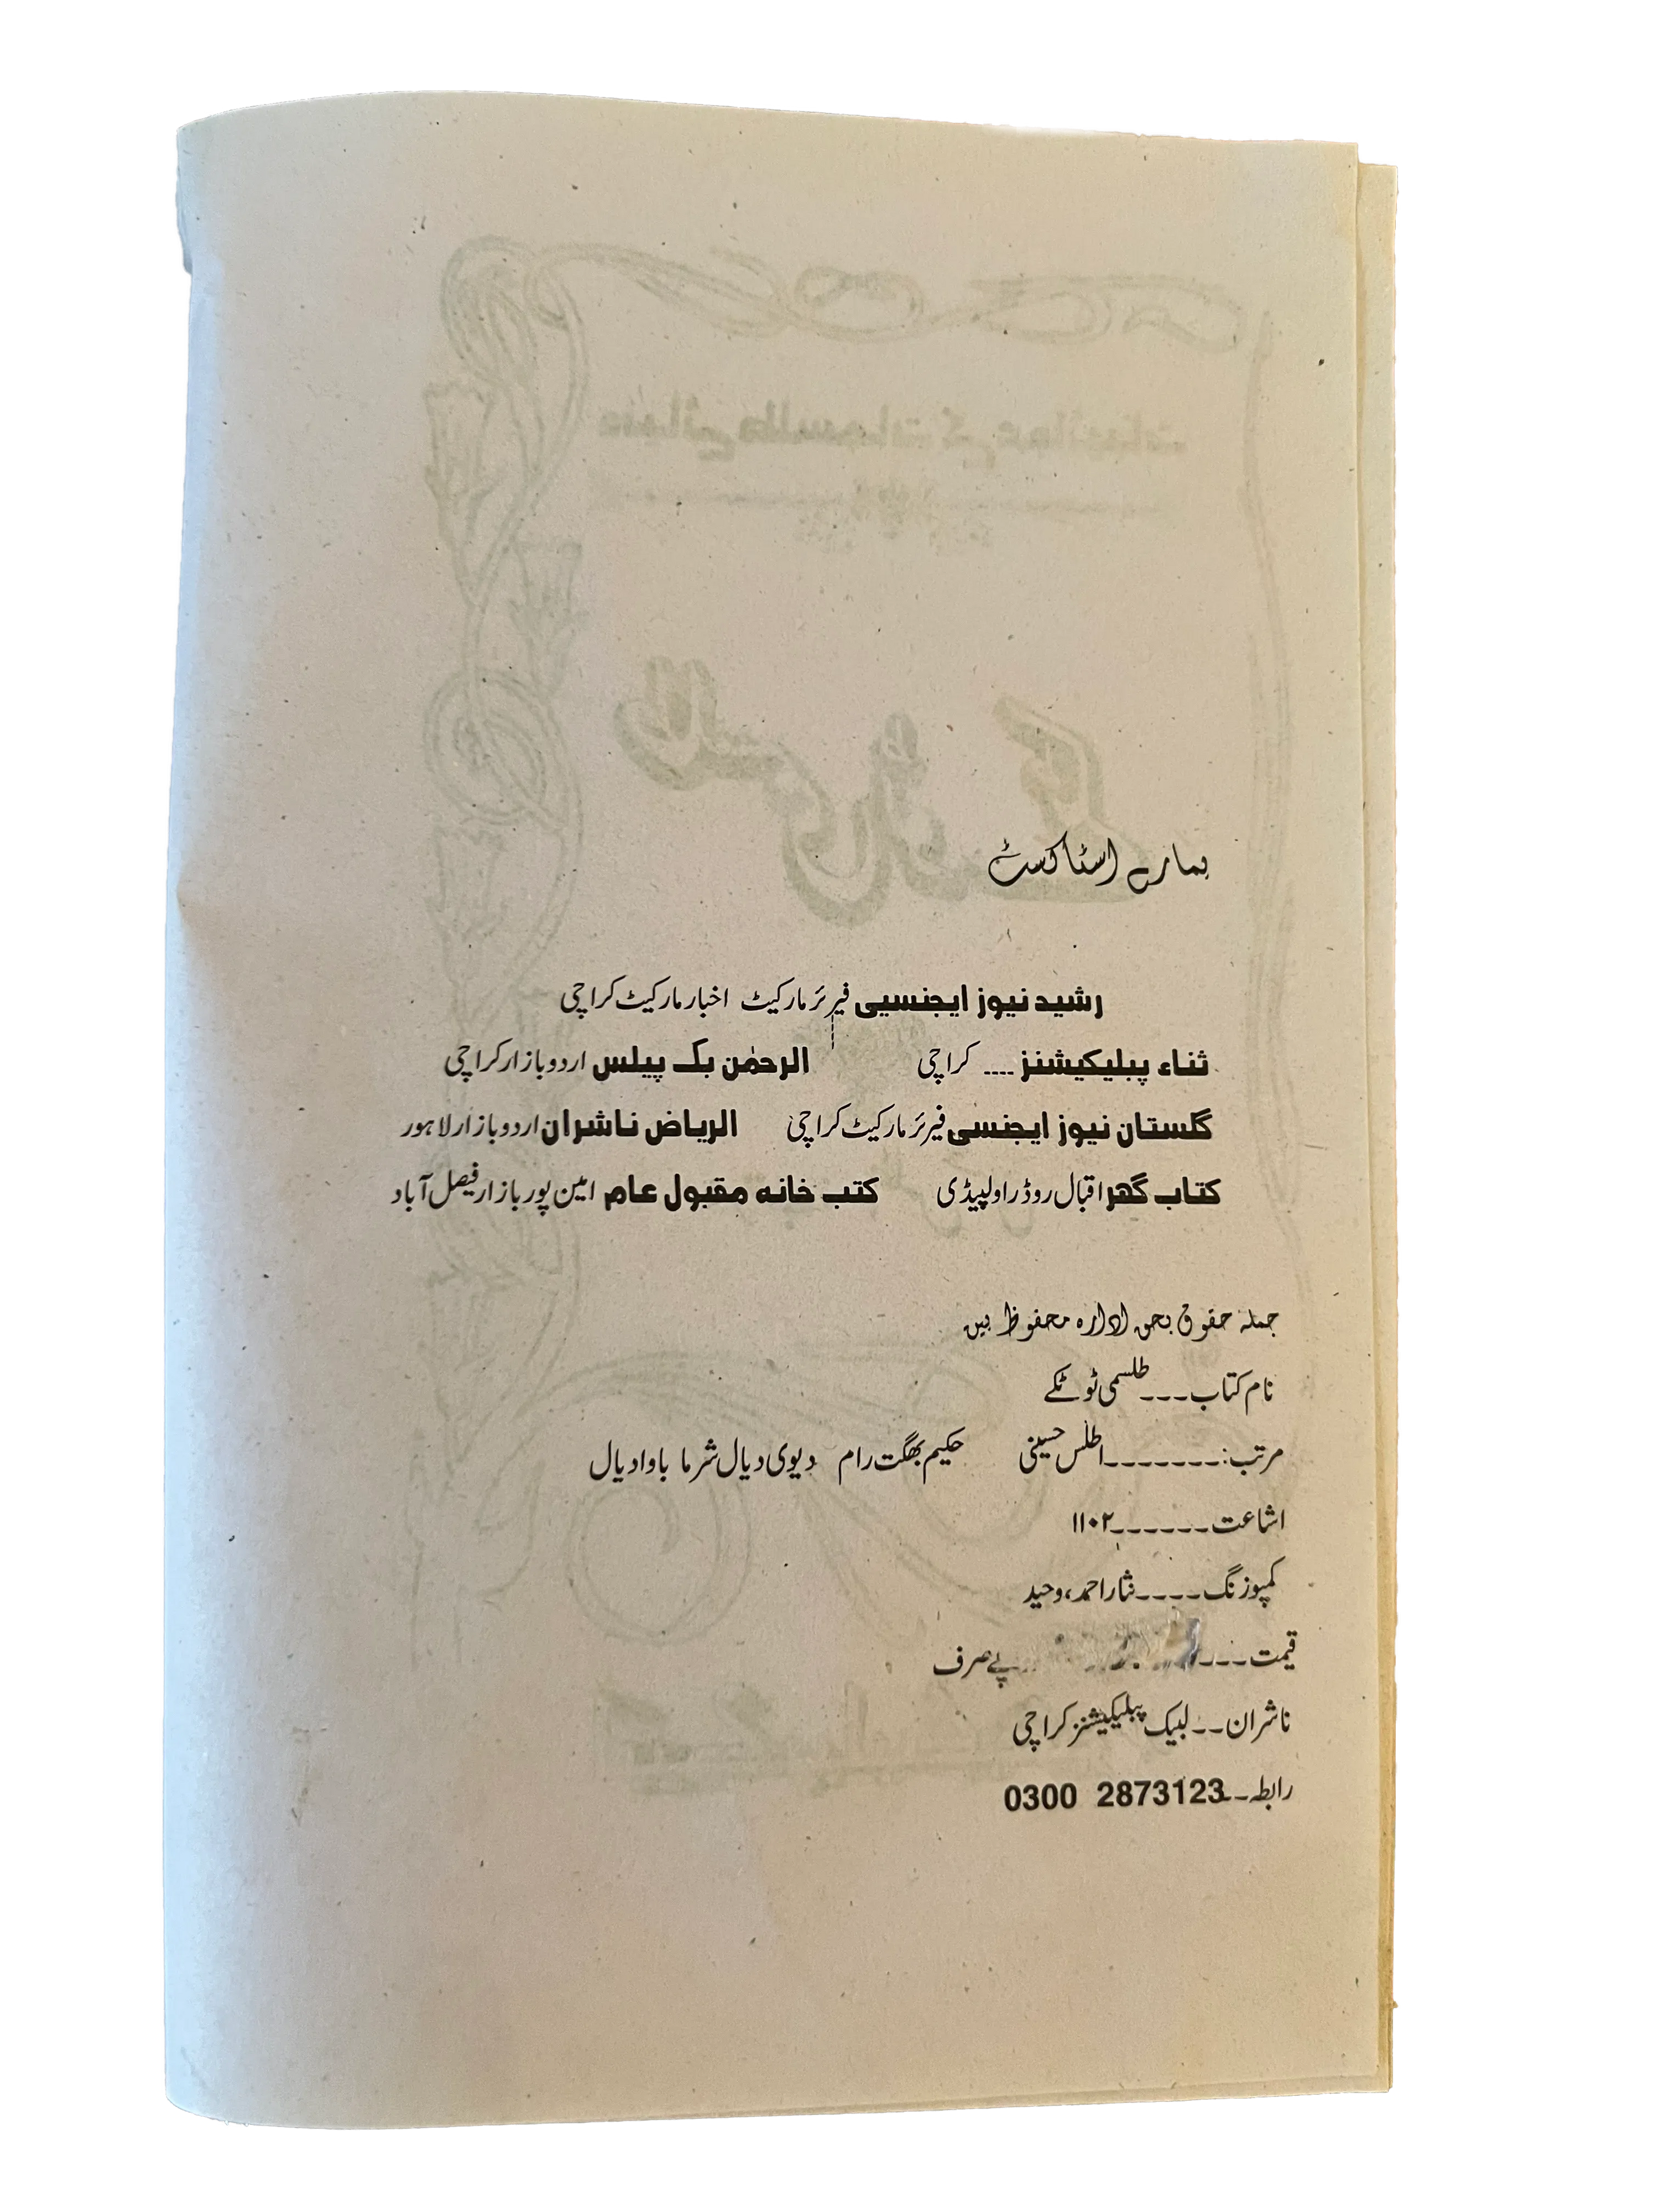 ہمارے اسٹاکسٹ
رشید نیوز ایجنسیی فیرئر مارکیٹ اخبار مارکیٹ کراچی
ثناء پبلیکیشنز ---- کراچی الرحمٰن بک پیلس اردو بازار کراچی
گلستان نیوز ایجنسی فیرئر مارکیٹ کراچی الریاض ناشران اردو بازار لاہور
کتاب گھر اقبال روڈ راولپیڈی کتب خانہ مقبول عام امین پور بازار فیصل آباد
جملہ حقوق بحق ادارہ محفوظ ہیں
نام کتاب ---- طلسمی ٹوٹکے
مرتب: ------- اطلس حسینی حکیم بھگت رام دیوی دیال شرما باوا دیال
اشاعت ------ ۱۱۰۲
کمپوزنگ ----- نثار احمد، وحید
قیمت ---- پے صرف
ناشران -- لبیک پبلیکیشنز کراچی
رابطہ -- 0300 2873123